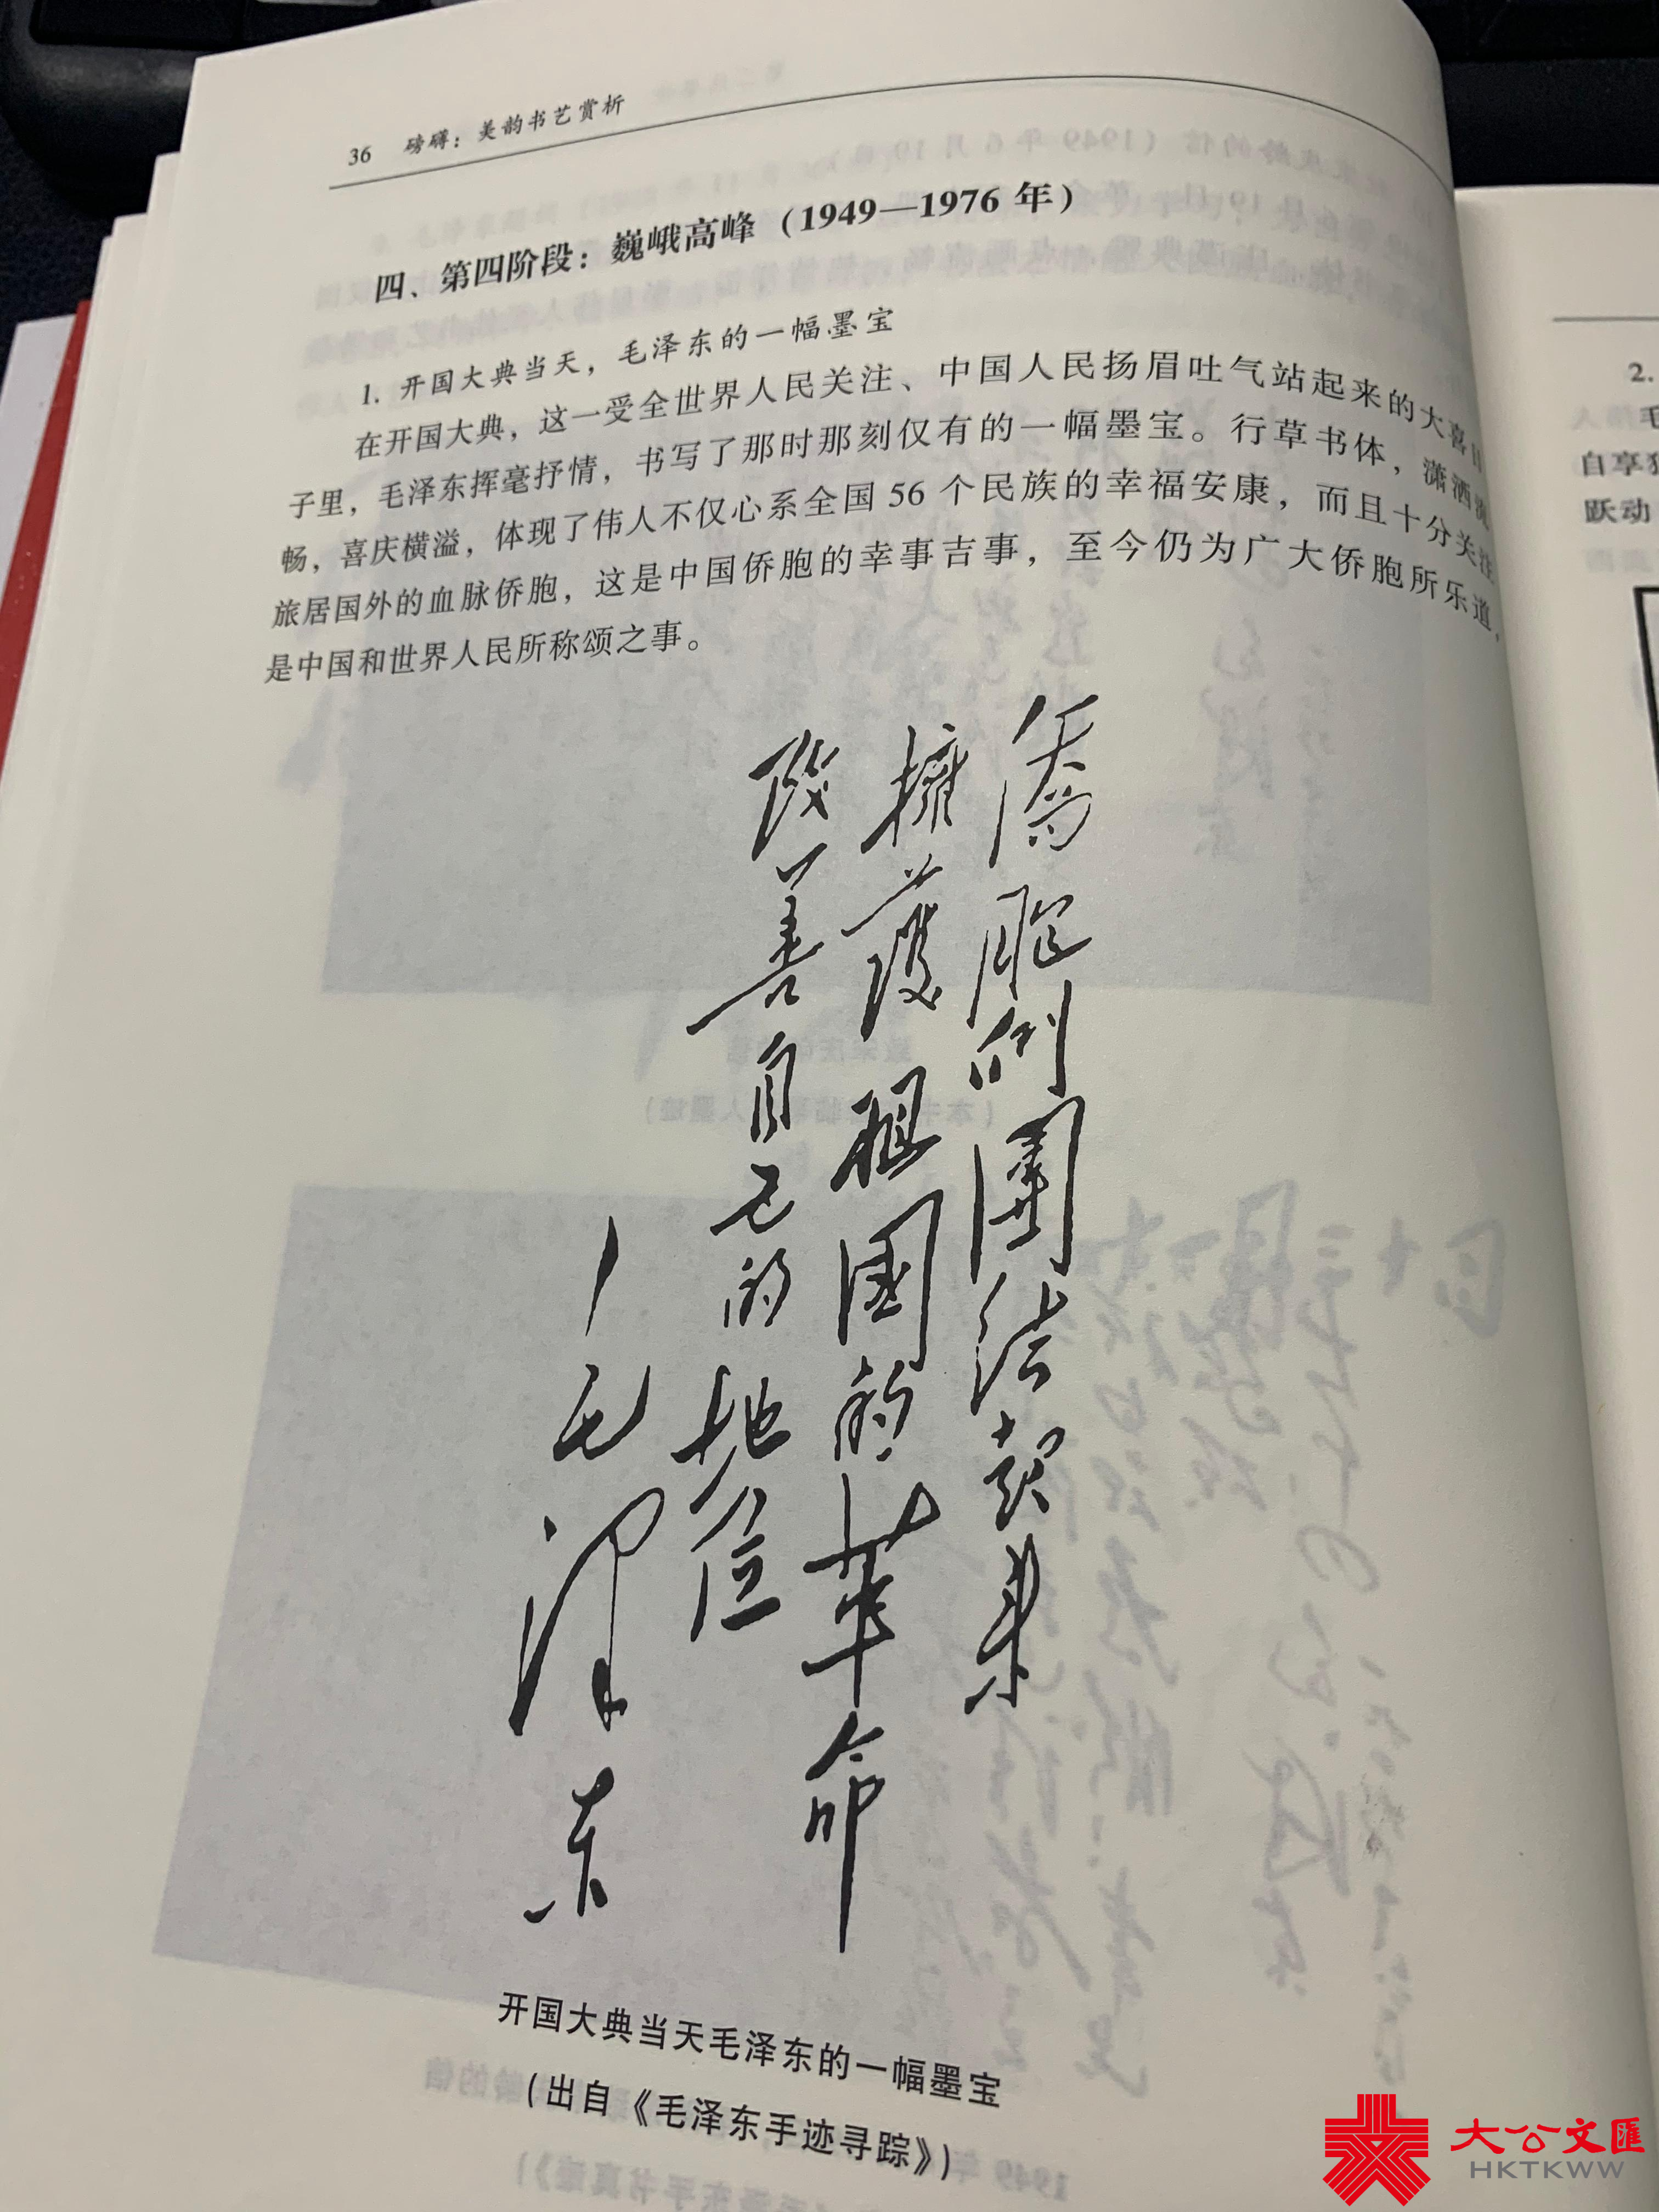 36 磅礴：美韵书艺赏析
四、第四阶段：巍峨高峰（1949—1976 年）
1. 开国大典当天，毛泽东的一幅墨宝
在开国大典，这一受全世界人民关注、中国人民扬眉吐气站起来的大喜日
子里，毛泽东挥毫抒情，书写了那时那刻仅有的一幅墨宝。行草书体，潇洒流
畅，喜庆横溢，体现了伟人不仅心系全国 56 个民族的幸福安康，而且十分关注
旅居国外的血脉侨胞，这是中国侨胞的幸事吉事，至今仍为广大侨胞所乐道，
是中国和世界人民所称颂之事。
僑胞們團結起來
擁護祖國的革命
改善自己的地位
毛澤东
开国大典当天毛泽东的一幅墨宝
（出自《毛泽东手迹寻踪》）
2.
自享
跃动
大公文匯
HKTKWW